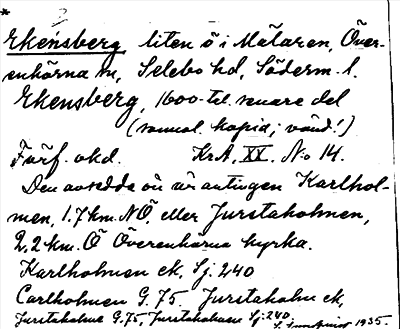 *
Ekensberg, liten ö i Mälaren, Över-
enhörna sn, Selebo hd, Söderm. l.
Ekensberg, 1600-tal. senare del
(samml. kopia; vänd!)
Förf. okd. KrA, XX. No 14.
Den avsedda ön är antingen Karlhol-
men, 1.7 km. NÖ. eller Jurstaholmen,
2,2 km. Ö Överenhörna kyrka.
Karlholmen ek, Sj. 240
Carlholmen G. 75. Jurstaholm ek,
Jurstaholme G. 75, Jurstaholmen Sj. 240.
1935.